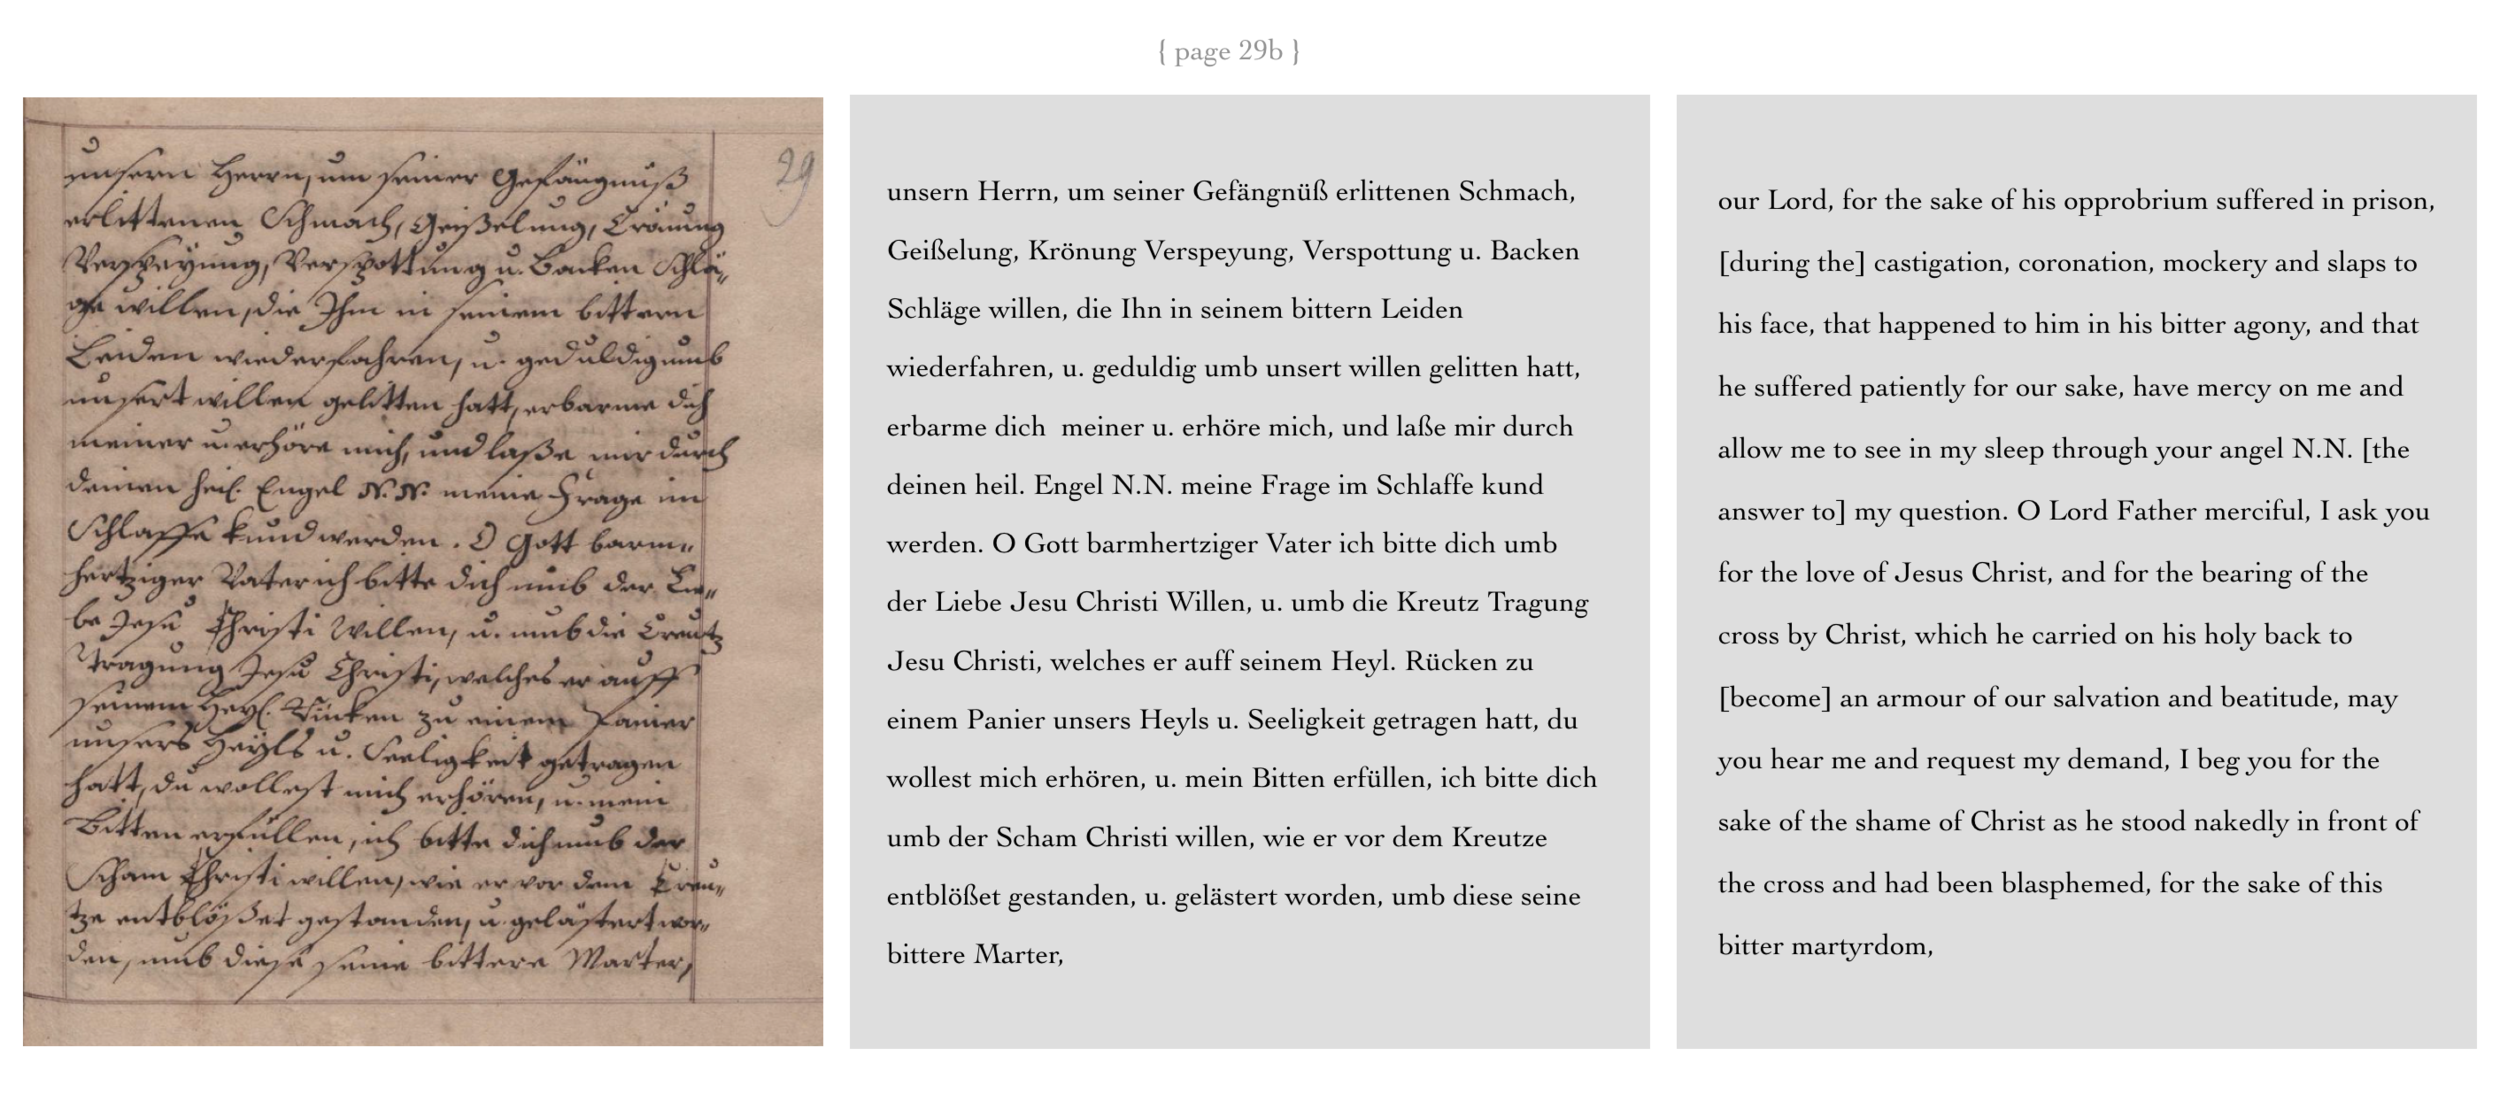 { page 29b }
unsern Herrn, um seiner Gefängnüß
erlittenen Schmach, Geißelung, Crönung
Verspeyung, Verspottung u. Backen Schlä„
ge willen, die Ihm in seinem bittern
Leiden wiederfahren, u. geduldig umb
unsert willen gelitten hatt, erbarme dich
meiner u. erhöre mich, und laße mir durch
deinen heil. Engel N. N. meine Frage im
Schlaffe kund werden. O Gott barm„
hertziger Vater ich bitte dich umb der Lie„
be Jesu Christi Willen, u. umb die Creutz
Tragung Jesu Christi, welches er auff
seinem Heyl. Rücken zu einem Panier
unsers Heyls u. Seeligkeit getragen
hatt, du wollest mich erhören, u. mein
Bitten erfüllen, ich bitte dich umb der
Scham Christi willen, wie er vor dem Creu„
tze entblößet gestanden, u. gelästert wor„
den, umb diese seine bittere Marter,
29
unsern Herrn, um seiner Gefängnüß erlittenen Schmach,
Geißelung, Krönung Verspeyung, Verspottung u. Backen
Schläge willen, die Ihn in seinem bittern Leiden
wiederfahren, u. geduldig umb unsert willen gelitten hatt,
erbarme dich  meiner u. erhöre mich, und laße mir durch
deinen heil. Engel N.N. meine Frage im Schlaffe kund
werden. O Gott barmhertziger Vater ich bitte dich umb
der Liebe Jesu Christi Willen, u. umb die Kreutz Tragung
Jesu Christi, welches er auff seinem Heyl. Rücken zu
einem Panier unsers Heyls u. Seeligkeit getragen hatt, du
wollest mich erhören, u. mein Bitten erfüllen, ich bitte dich
umb der Scham Christi willen, wie er vor dem Kreutze
entblößet gestanden, u. gelästert worden, umb diese seine
bittere Marter,
our Lord, for the sake of his opprobrium suffered in prison,
[during the] castigation, coronation, mockery and slaps to
his face, that happened to him in his bitter agony, and that
he suffered patiently for our sake, have mercy on me and
allow me to see in my sleep through your angel N.N. [the
answer to] my question. O Lord Father merciful, I ask you
for the love of Jesus Christ, and for the bearing of the
cross by Christ, which he carried on his holy back to
[become] an armour of our salvation and beatitude, may
you hear me and request my demand, I beg you for the
sake of the shame of Christ as he stood nakedly in front of
the cross and had been blasphemed, for the sake of this
bitter martyrdom,